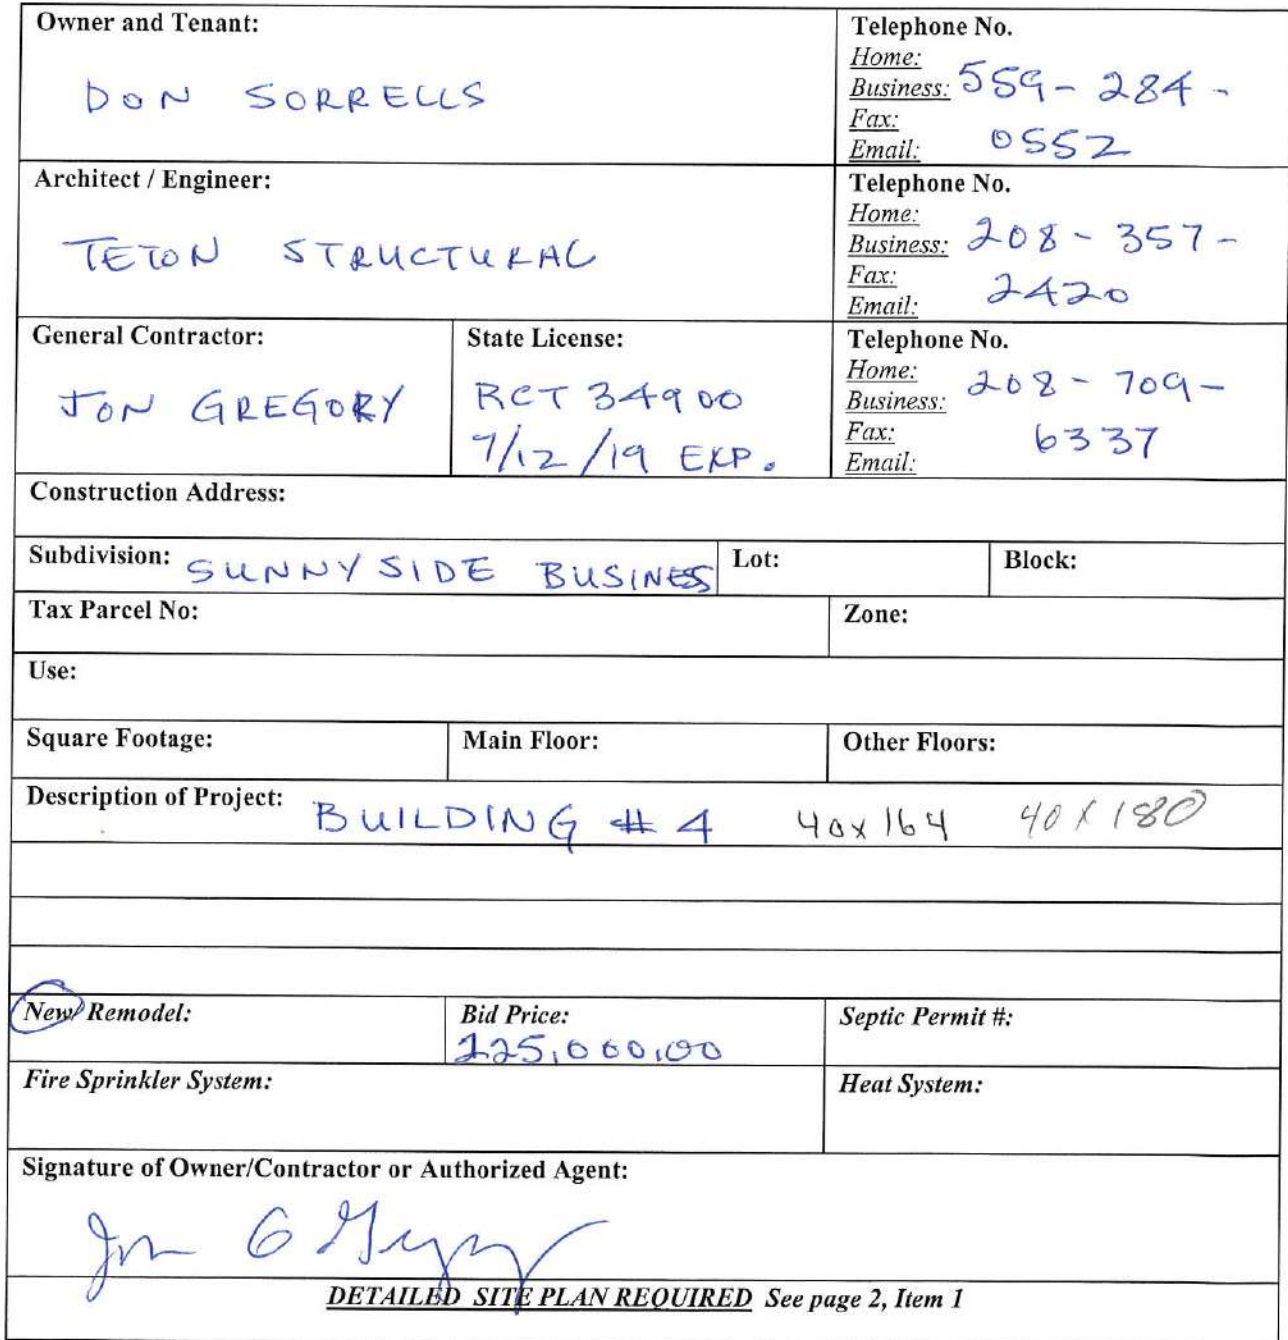 Owner and Tenant:
DON SORRELLS
Telephone No.
Home:
Business: 559-284-
Fax:
Email: 0552
Architect / Engineer:
TETON STRUCTURAL
Telephone No.
Home:
Business: 208-357-
Fax:
Email: 2420
General Contractor:
JON GREGORY
State License:
RCT 34900
9/12/19 EXP.
Telephone No.
Home: 208-709-
Business:
Fax: 6337
Email:
Construction Address:
Subdivision: SUNNYSIDE BUSINESS
Lot:
Block:
Tax Parcel No:
Zone:
Use:
Square Footage:
Main Floor:
Other Floors:
Description of Project: BUILDING #4 40x164 40x180
New/ Remodel:
Bid Price:
225,000,00
Septic Permit #:
Fire Sprinkler System:
Heat System:
Signature of Owner/Contractor or Authorized Agent:
Jon G Gregory
DETAILED SITE PLAN REQUIRED See page 2, Item 1